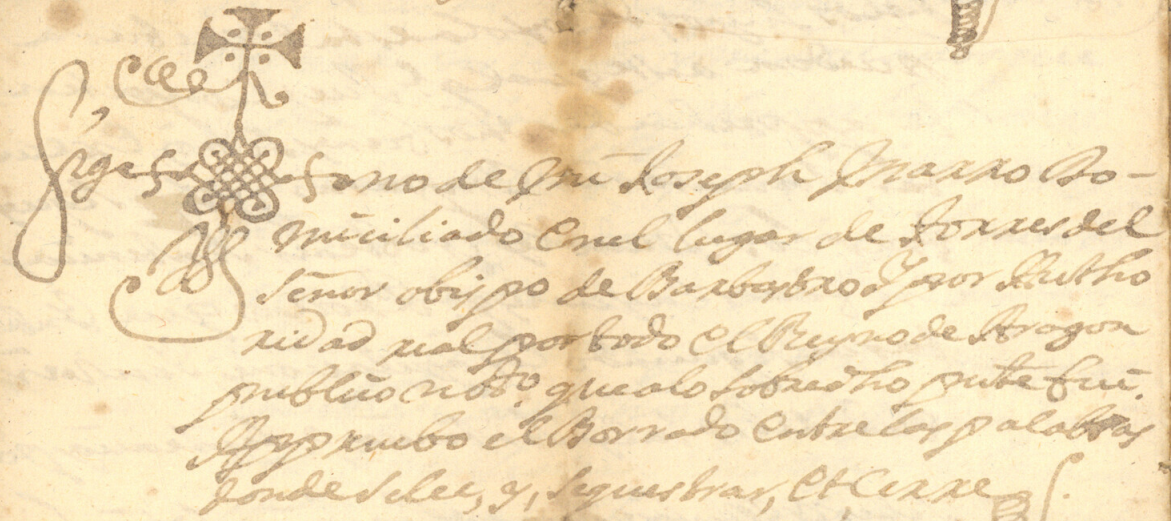 Sig no de mi Joseph Marro Do-
miciliado en el lugar de Torres del
señor obispo de Barbastro Y por Autho
ridad real por todo el Reyno de Aragon
publico notº. que a lo sobredho pnte fui.
Appruebo el Borrado entre las palabras
donde se lee, y, sequestrar, et Cerre